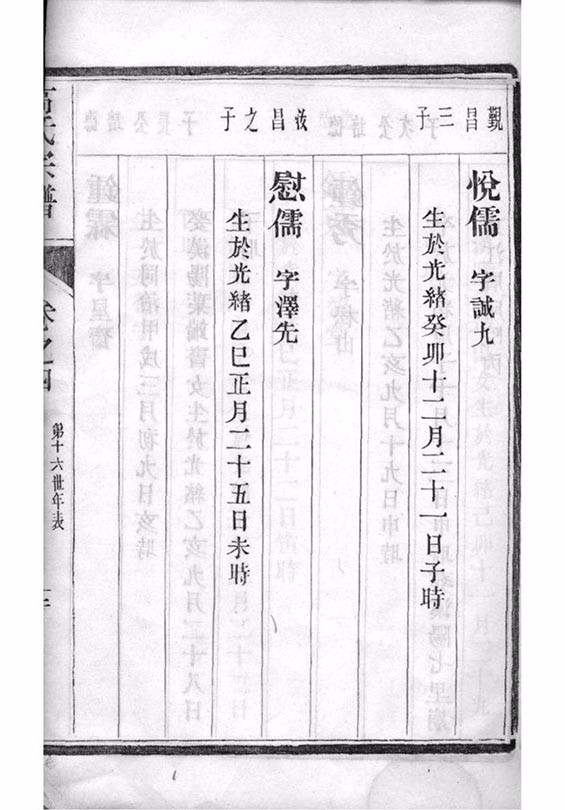 觀昌三子
悅儒 字誠九
生於光緒癸卯十二月二十一日子時
汝昌之子
慰儒 字澤先
生於光緒乙巳正月二十五日未時
氏宗譜 卷之四 第十六世年表